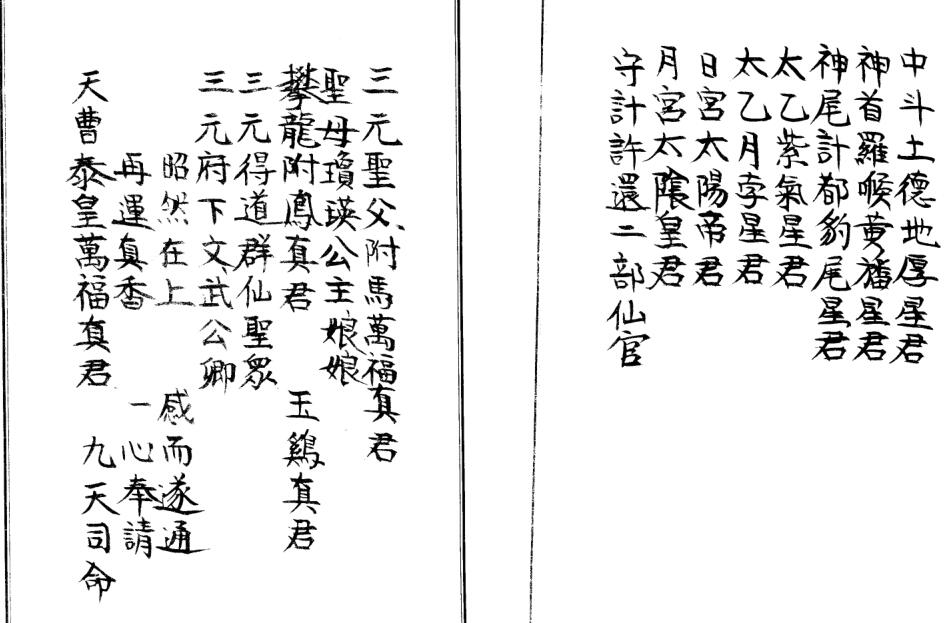 中斗土德地厚星君
神首羅睺黄旛星君
神尾計都豹尾星君
太乙紫氣星君
太乙月孛星君
日宮太陽帝君
月宮太陰皇君
守計許還二部仙官
三元聖父附馬萬福真君
聖母瓊瑛公主娘娘
攀龍附鳳真君 玉鷄真君
三元得道群仙聖眾
三元府下文武公卿
昭然在上 感而遂通
再運真香 一心奉請
天曹泰皇萬福真君 九天司命